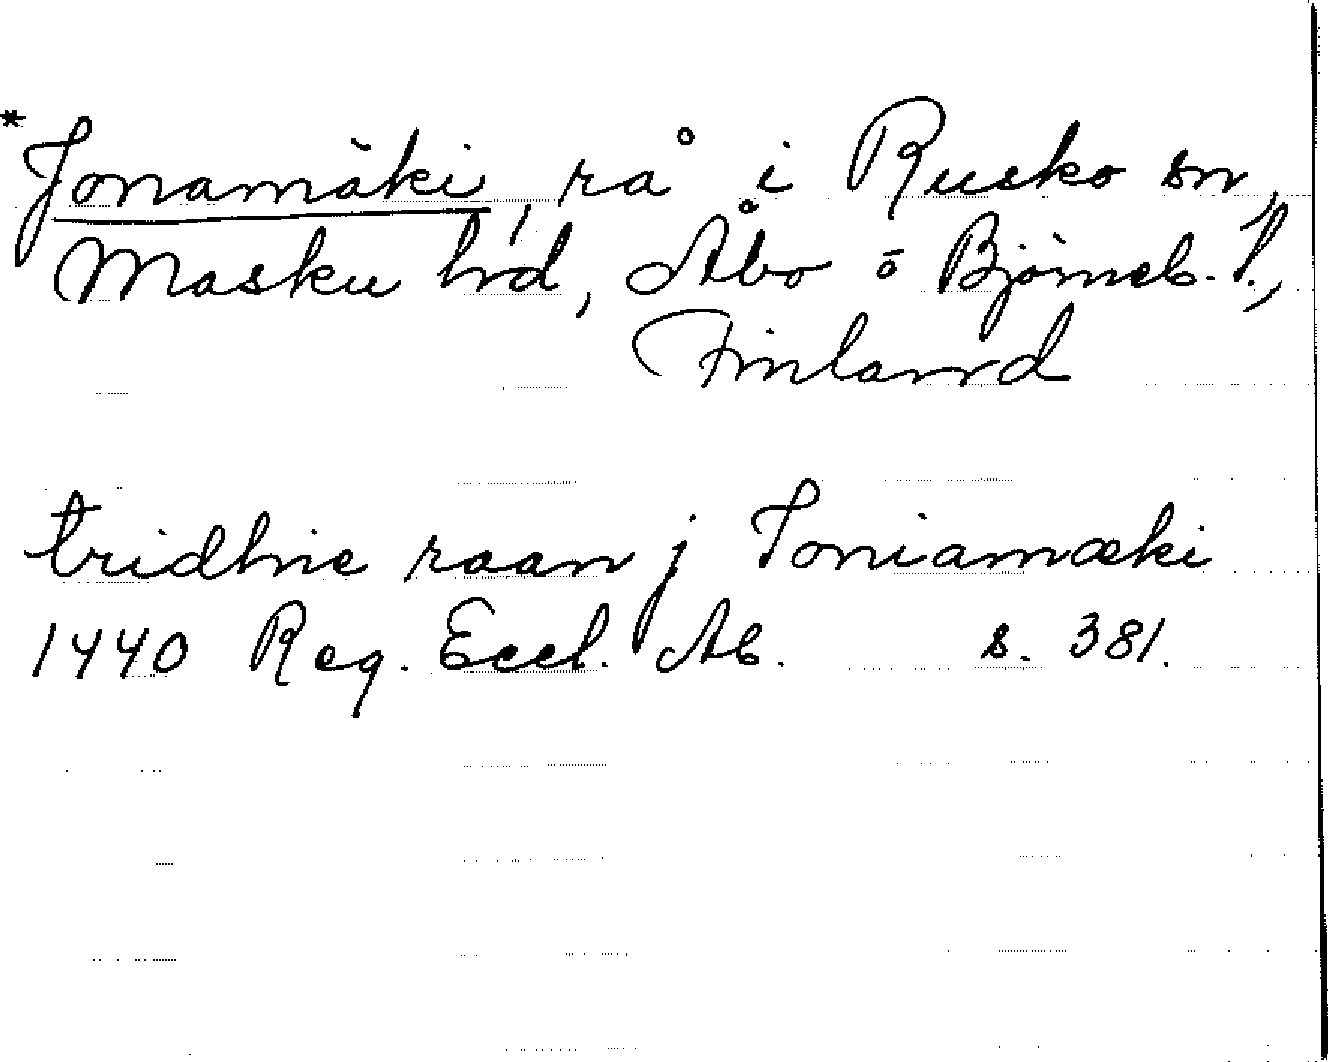 *Jonamäki, rå i Rusko sn,
Masku hd, Åbo o Björneb. l.,
Finland
tridhie raan j Joniamæki
1440 Reg. Eccl. Ab. s. 381.